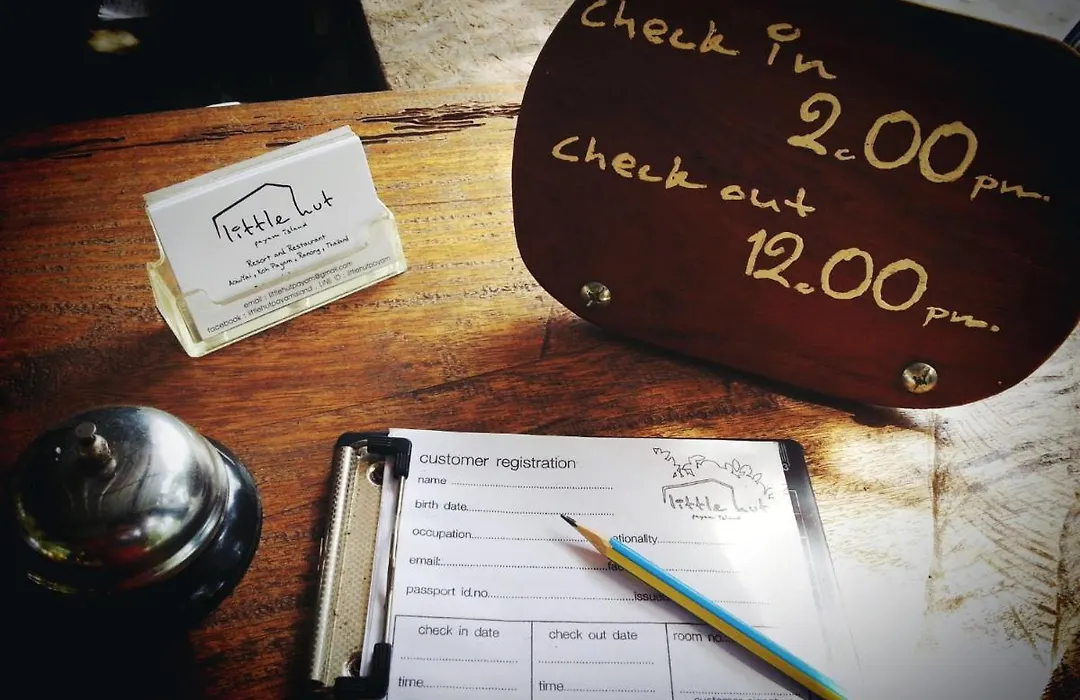 check in
2.00 pm.
check out
12.00 pm.
little hut
payam island
Resort and Restaurant
Aow Yai, Koh Payam, Ranong, Thailand
email : littlehutpayam@gmail.com
facebook : littlehutpayamisland . LINE ID : littlehutpayam
customer registration
little hut
payam island
name
birth date
occupation
email:
passport id.no
check in date
check out date
room no.
time
time